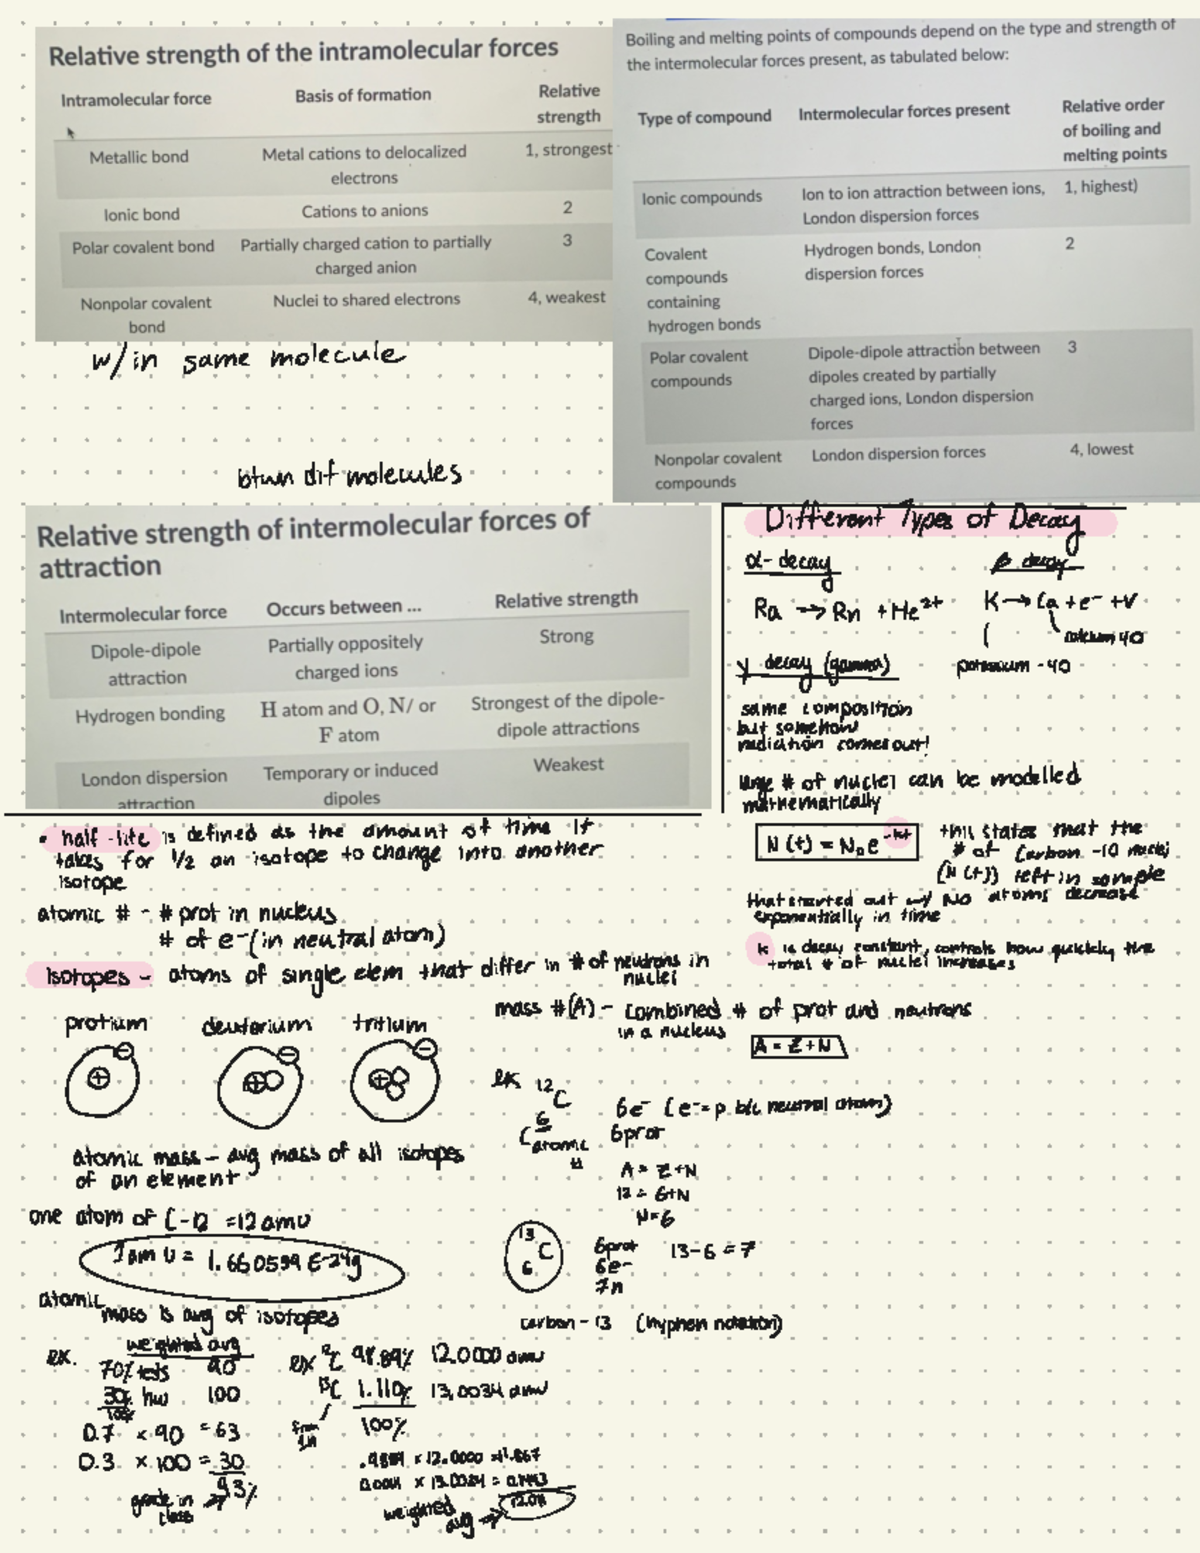 Relative strength of the intramolecular forces
Intramolecular force Basis of formation Relative strength
Metallic bond Metal cations to delocalized electrons 1, strongest
Ionic bond Cations to anions 2
Polar covalent bond Partially charged cation to partially charged anion 3
Nonpolar covalent bond Nuclei to shared electrons 4, weakest
w/in same molecule
Boiling and melting points of compounds depend on the type and strength of
the intermolecular forces present, as tabulated below:
Type of compound Intermolecular forces present Relative order of boiling and melting points
Ionic compounds Ion to ion attraction between ions, London dispersion forces 1, highest)
Covalent compounds containing hydrogen bonds Hydrogen bonds, London dispersion forces 2
Polar covalent compounds Dipole-dipole attraction between dipoles created by partially charged ions, London dispersion forces 3
Nonpolar covalent compounds London dispersion forces 4, lowest
btwn dif molecules
Relative strength of intermolecular forces of
attraction
Intermolecular force Occurs between ... Relative strength
Dipole-dipole attraction Partially oppositely charged ions Strong
Hydrogen bonding H atom and O, N/ or F atom Strongest of the dipole-dipole attractions
London dispersion attraction Temporary or induced dipoles Weakest
Different Types of Decay
α-decay
Ra → Rn + He²⁺
β decay
K → Ca + e⁻ + v
calcium 40
potassium - 40
γ decay (gamma)
same composition
but somehow
radiation comes out!
large # of nuclei can be modelled
mathematically
N(t) = N₀e^-kt
this states that the
# of Carbon -10 nuclei
(N(t)) left in sample
that started out w/ N0 atoms decrease
exponentially in time
k is decay constant, controls how quickly the
total # of nuclei increases
• half-life is defined as the amount of time it
takes for 1/2 an isotope to change into another
isotope
atomic # - # prot in nucleus
# of e⁻ (in neutral atom)
Isotopes - atoms of single elem that differ in # of neutrons in
nuclei
protium deuterium tritium
mass # (A) - combined # of prot and neutrons
in a nucleus
A = Z + N
ex 12 C
6
atomic
#
6e⁻ (e⁻=p b/c neutral atom)
6prot
A = Z+N
12 = 6+N
N=6
atomic mass - avg mass of all isotopes
of an element
one atom of C-12 = 12 amu
1 amu = 1.660599 E-24g
13 C
6
6prot
6e-
7n
13-6=7
carbon - 13 (hyphen notation)
atomic
mass is avg of isotopes
weighted avg
ex.
70% tests 90
30% hw 100
100%
0.7 × 90 = 63
0.3 × 100 = 30
93%
grade in
class
ex ¹²C 98.89% 12.0000 amu
¹³C 1.110% 13.0034 amu
100%
.9889 × 12.0000 = 11.867
× 13.0034 = 0.1443
weighted
avg → 12.011